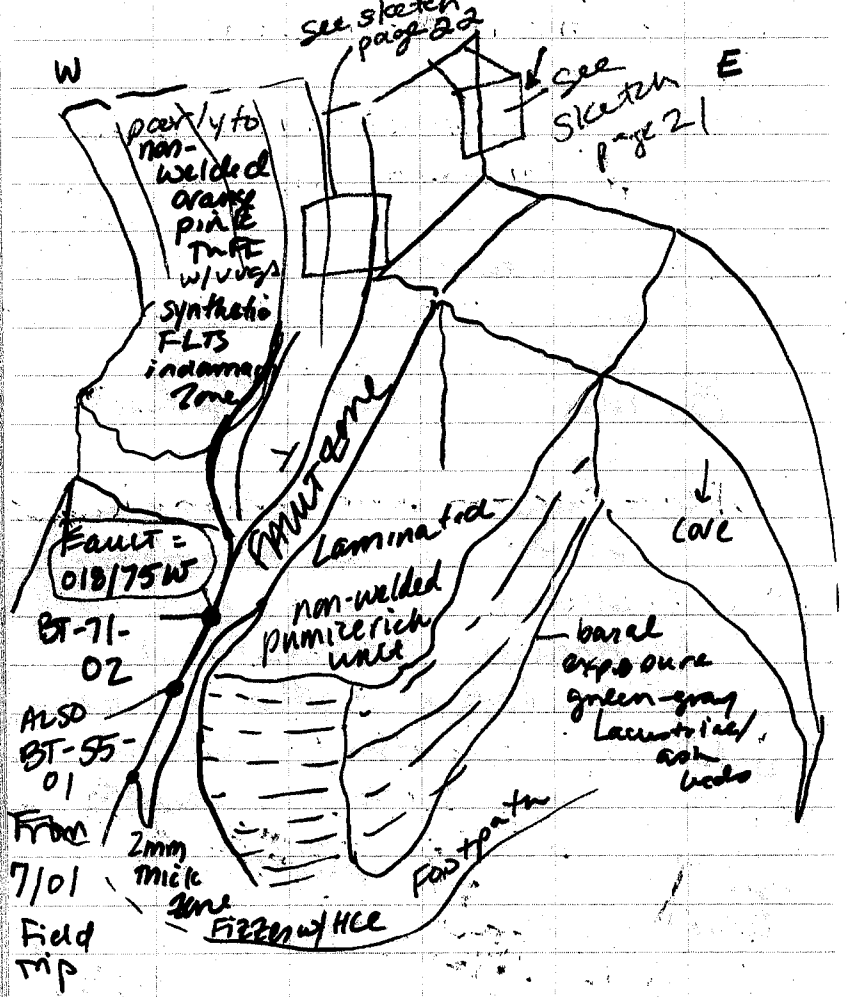 See sketch
page 22
W
E
See
sketch
page 21
poorly to
non-
welded
orange
pink
TUFF
w/vugs
synthetic
FLTS
in damage
Zone
FAULT Zone
Fault =
018/75W
BT-71-
02
ALSO
BT-55-
01
From
7/01
Field
Trip
Laminated
non-welded
pumice rich
unit
Cave
basal
exposure
green-gray
Lacustrine/
ash
beds
2mm
thick
zone
Fizzes w/ HCl
Footpath